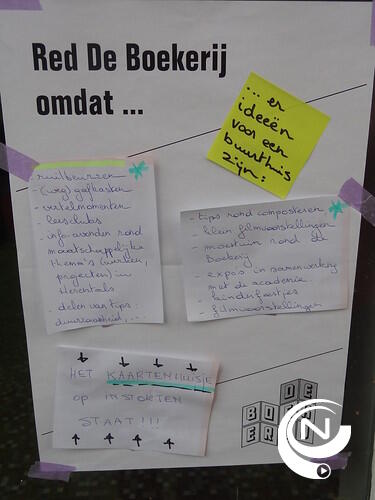 Red De Boekerij
omdat ...
... er
ideeën
voor een
buurthuis
zijn:
- ruilbeurzen
- (weg)geefkasten
- vertelmomenten
- leesclubs
- info-avonden rond
maatschappelijke
thema's (
projecten) in
Herentals
- delen van tips,
duurzaamheid, ...
- tips rond composteren
- klein filmvoorstellingen
- moestuin rond de
Boekerij
- expos in samenwerking
met de academie
- kinderfeestjes
- filmvoorstellingen
HET KAARTENHUISJE
OP INSTORTEN
STAAT!!!
DE
BOEK
ERIJ
N